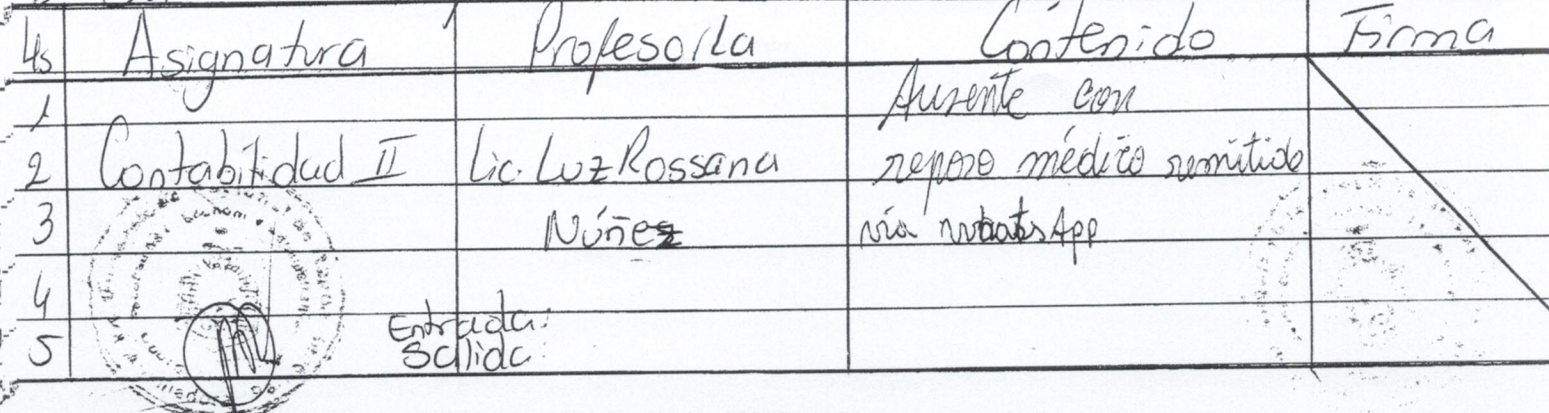 Hs Asignatura Profesor/la Contenido Firma
1 Ausente con
2 Contabilidad II Lic. Luz Rossana reposo médico remitido
3 Núñez vía whatsApp
4
Entrada:
5 Salida: